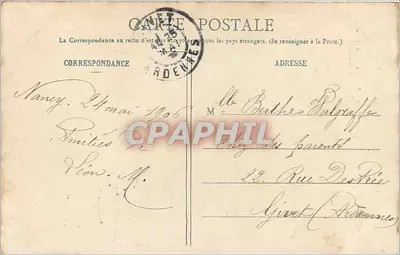 CARTE POSTALE
La Correspondance au recto n'est pas les pays étrangers. (Se renseigner à la Poste.)
CORRESPONDANCE
ADRESSE
GIVET
ARDENNES
Nancy, 24 mai 1906
Amitiés
Léon. M.
Mlle Berthe
Chez ses parents
22, Rue Des Prée
Givet (Ardennes)
CPAPHIL